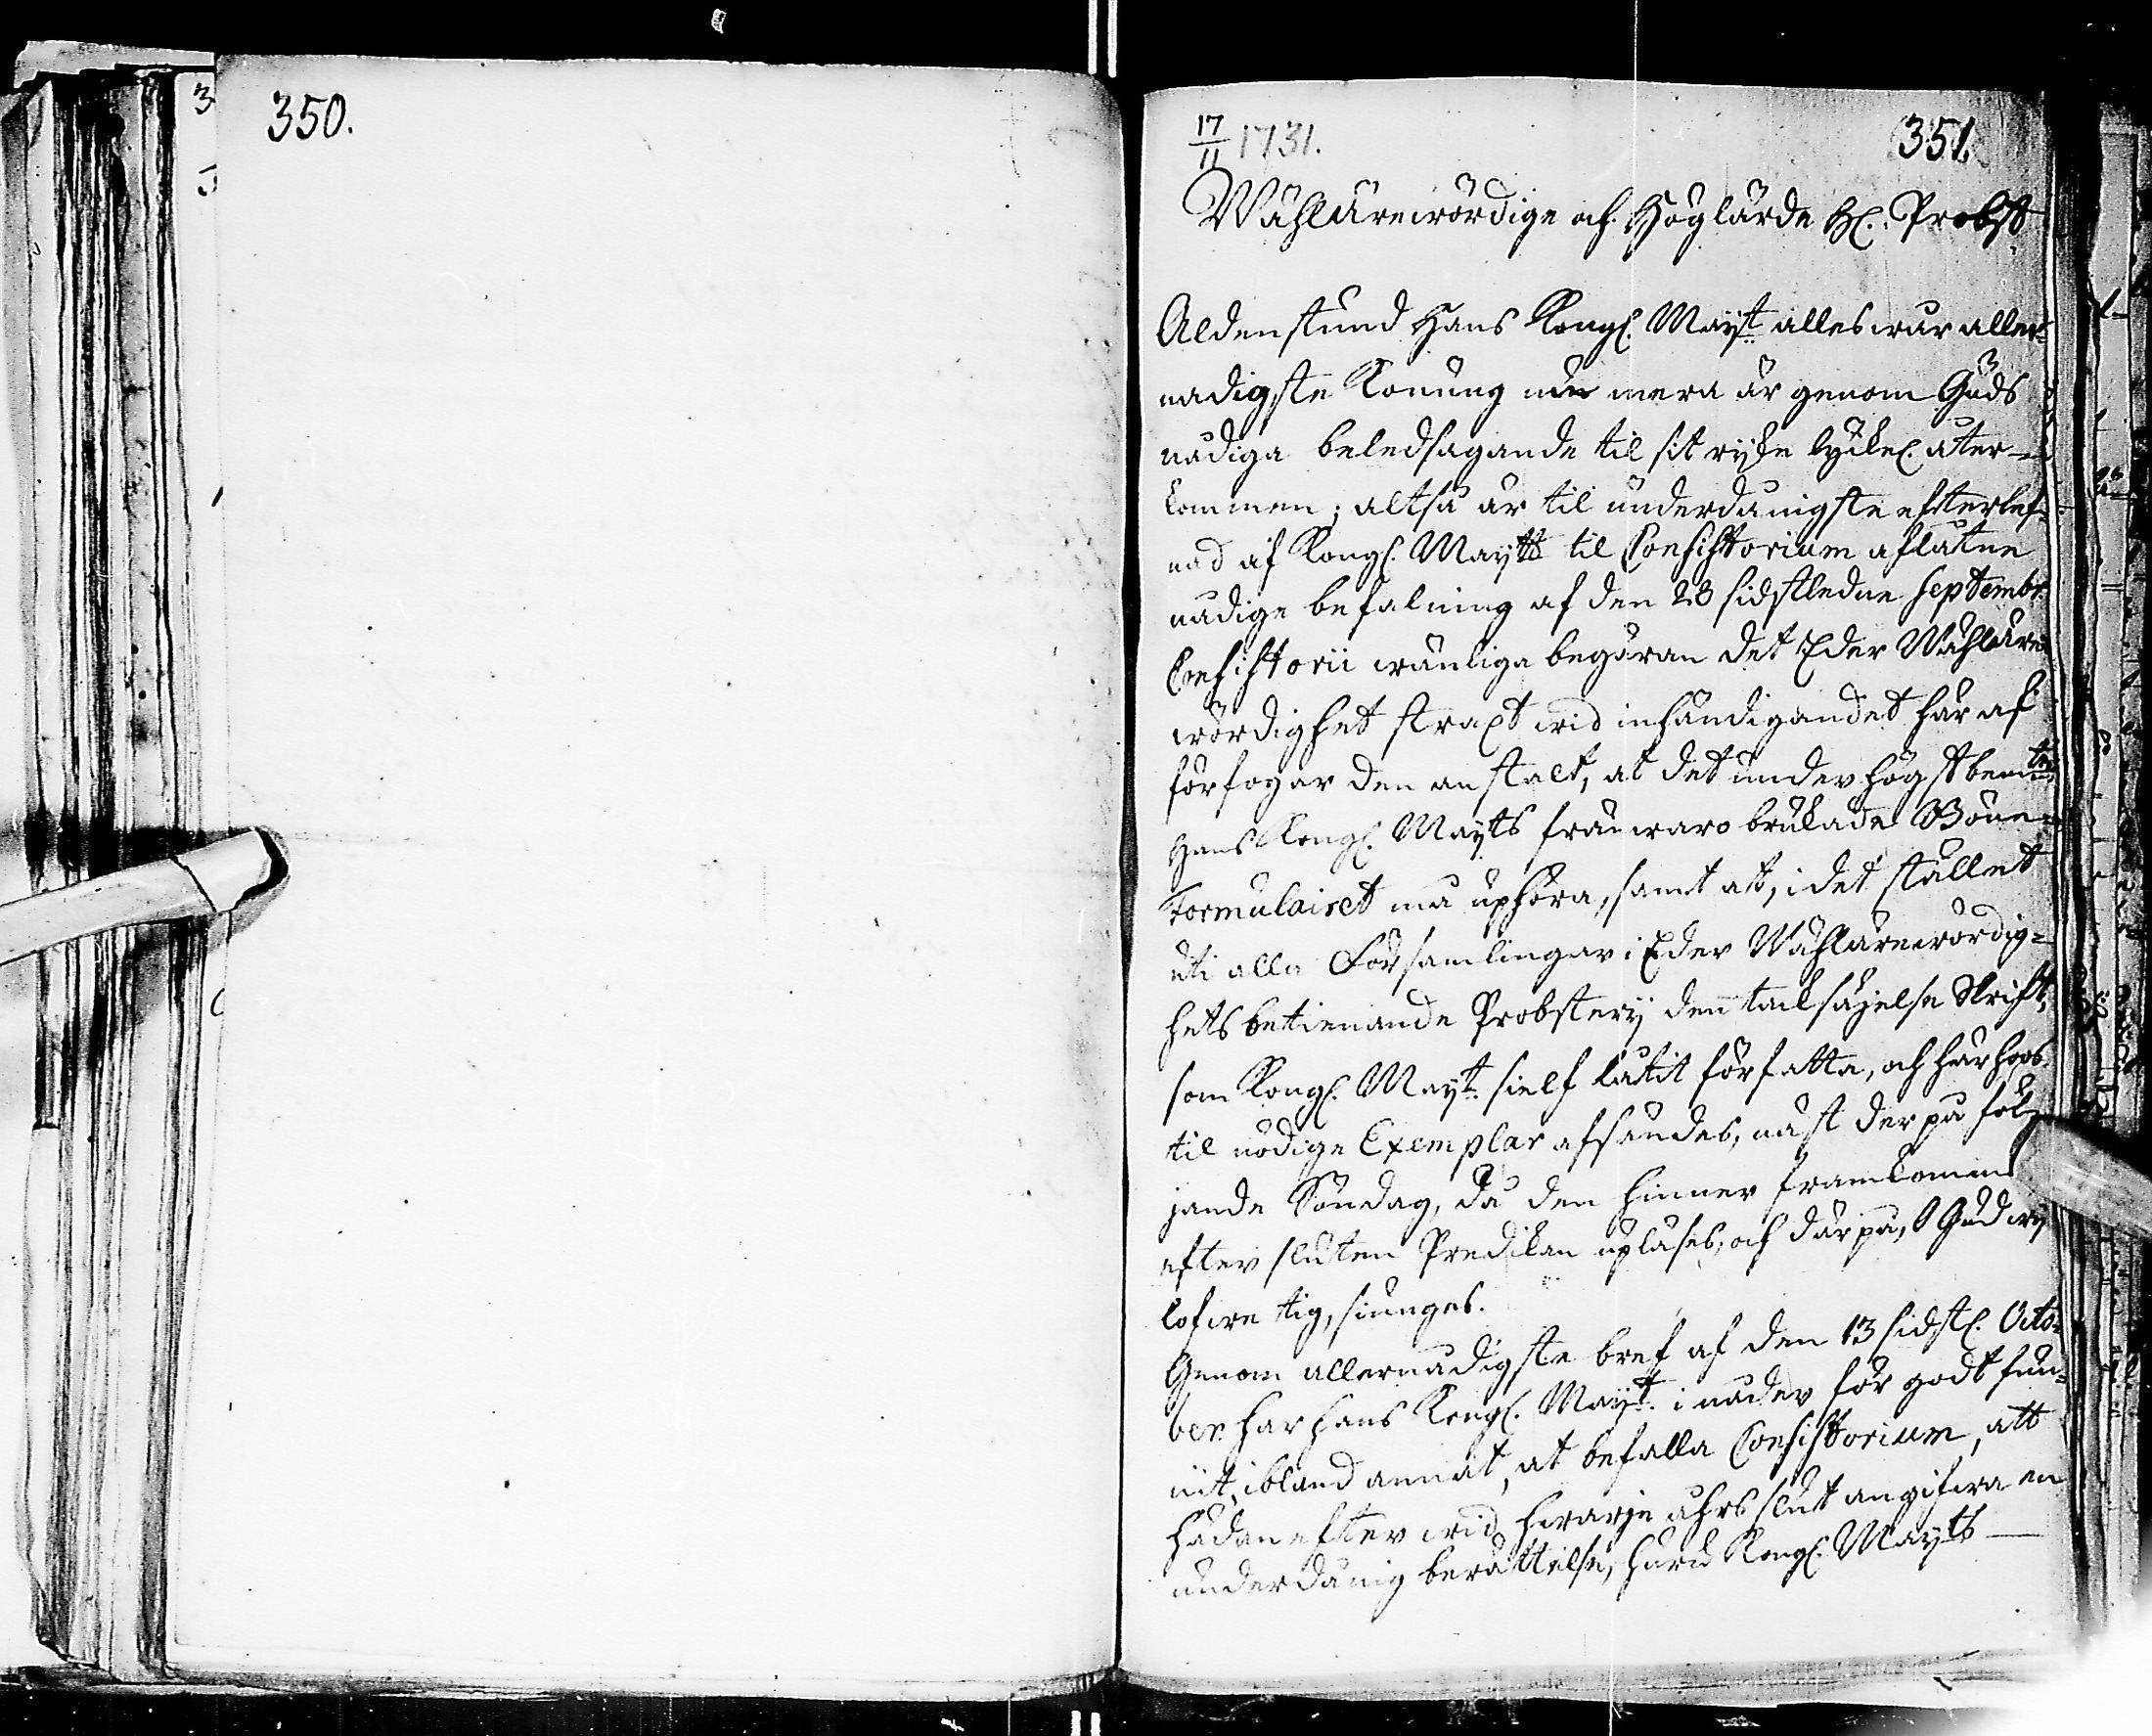 350.
17/11 1731.
351.
Wählärewördige och Höglärde H. Probst
Aldenstund Hans Kongl. Mayst alles wår aller-
nådigste Konung nu mera är genom Guds
nådiga beledsagande til sit ryke lyckel. åter-
kommen; altså är til underdånigste efterlef-
nad af Kongl. Maytts til Consistorium aflåtne
nådige befalning af den 28 sidstledne Septembr.
Consistorii wänliga begäran det Eder Wähläre
wördighet straxt wid inhändigandet här af
förfogar den anstalt, at det under högstbemte
Hans Kongl. Mayts frånwaro brukade Böne
Formulairet må uphöra, samt at, i det stället
uti alla Församlingar i Eder Wählärewördig-
hets betienande Probstery den tacksäjelse Skrift,
som Kongl. Mayt. sielf låtit författa, och här hoos
til nödige Exemplar afsändes, näst der på föl-
jande Söndag, då den hinner framkomma
efter sluten Predikan upläses, och därpå, O Gud wy
lofwe tig, siunges.
Genom allernådigste bref af den 13 sidstl. Octo-
ber har hans Kongl. Mayt. i nåder för godt fun-
nit, ibland annat, at befalla Consistorium, att
hädanefter wid hwarje åhrs slut angifwa en
underdånig berättelse, huru Kongl. Mayts